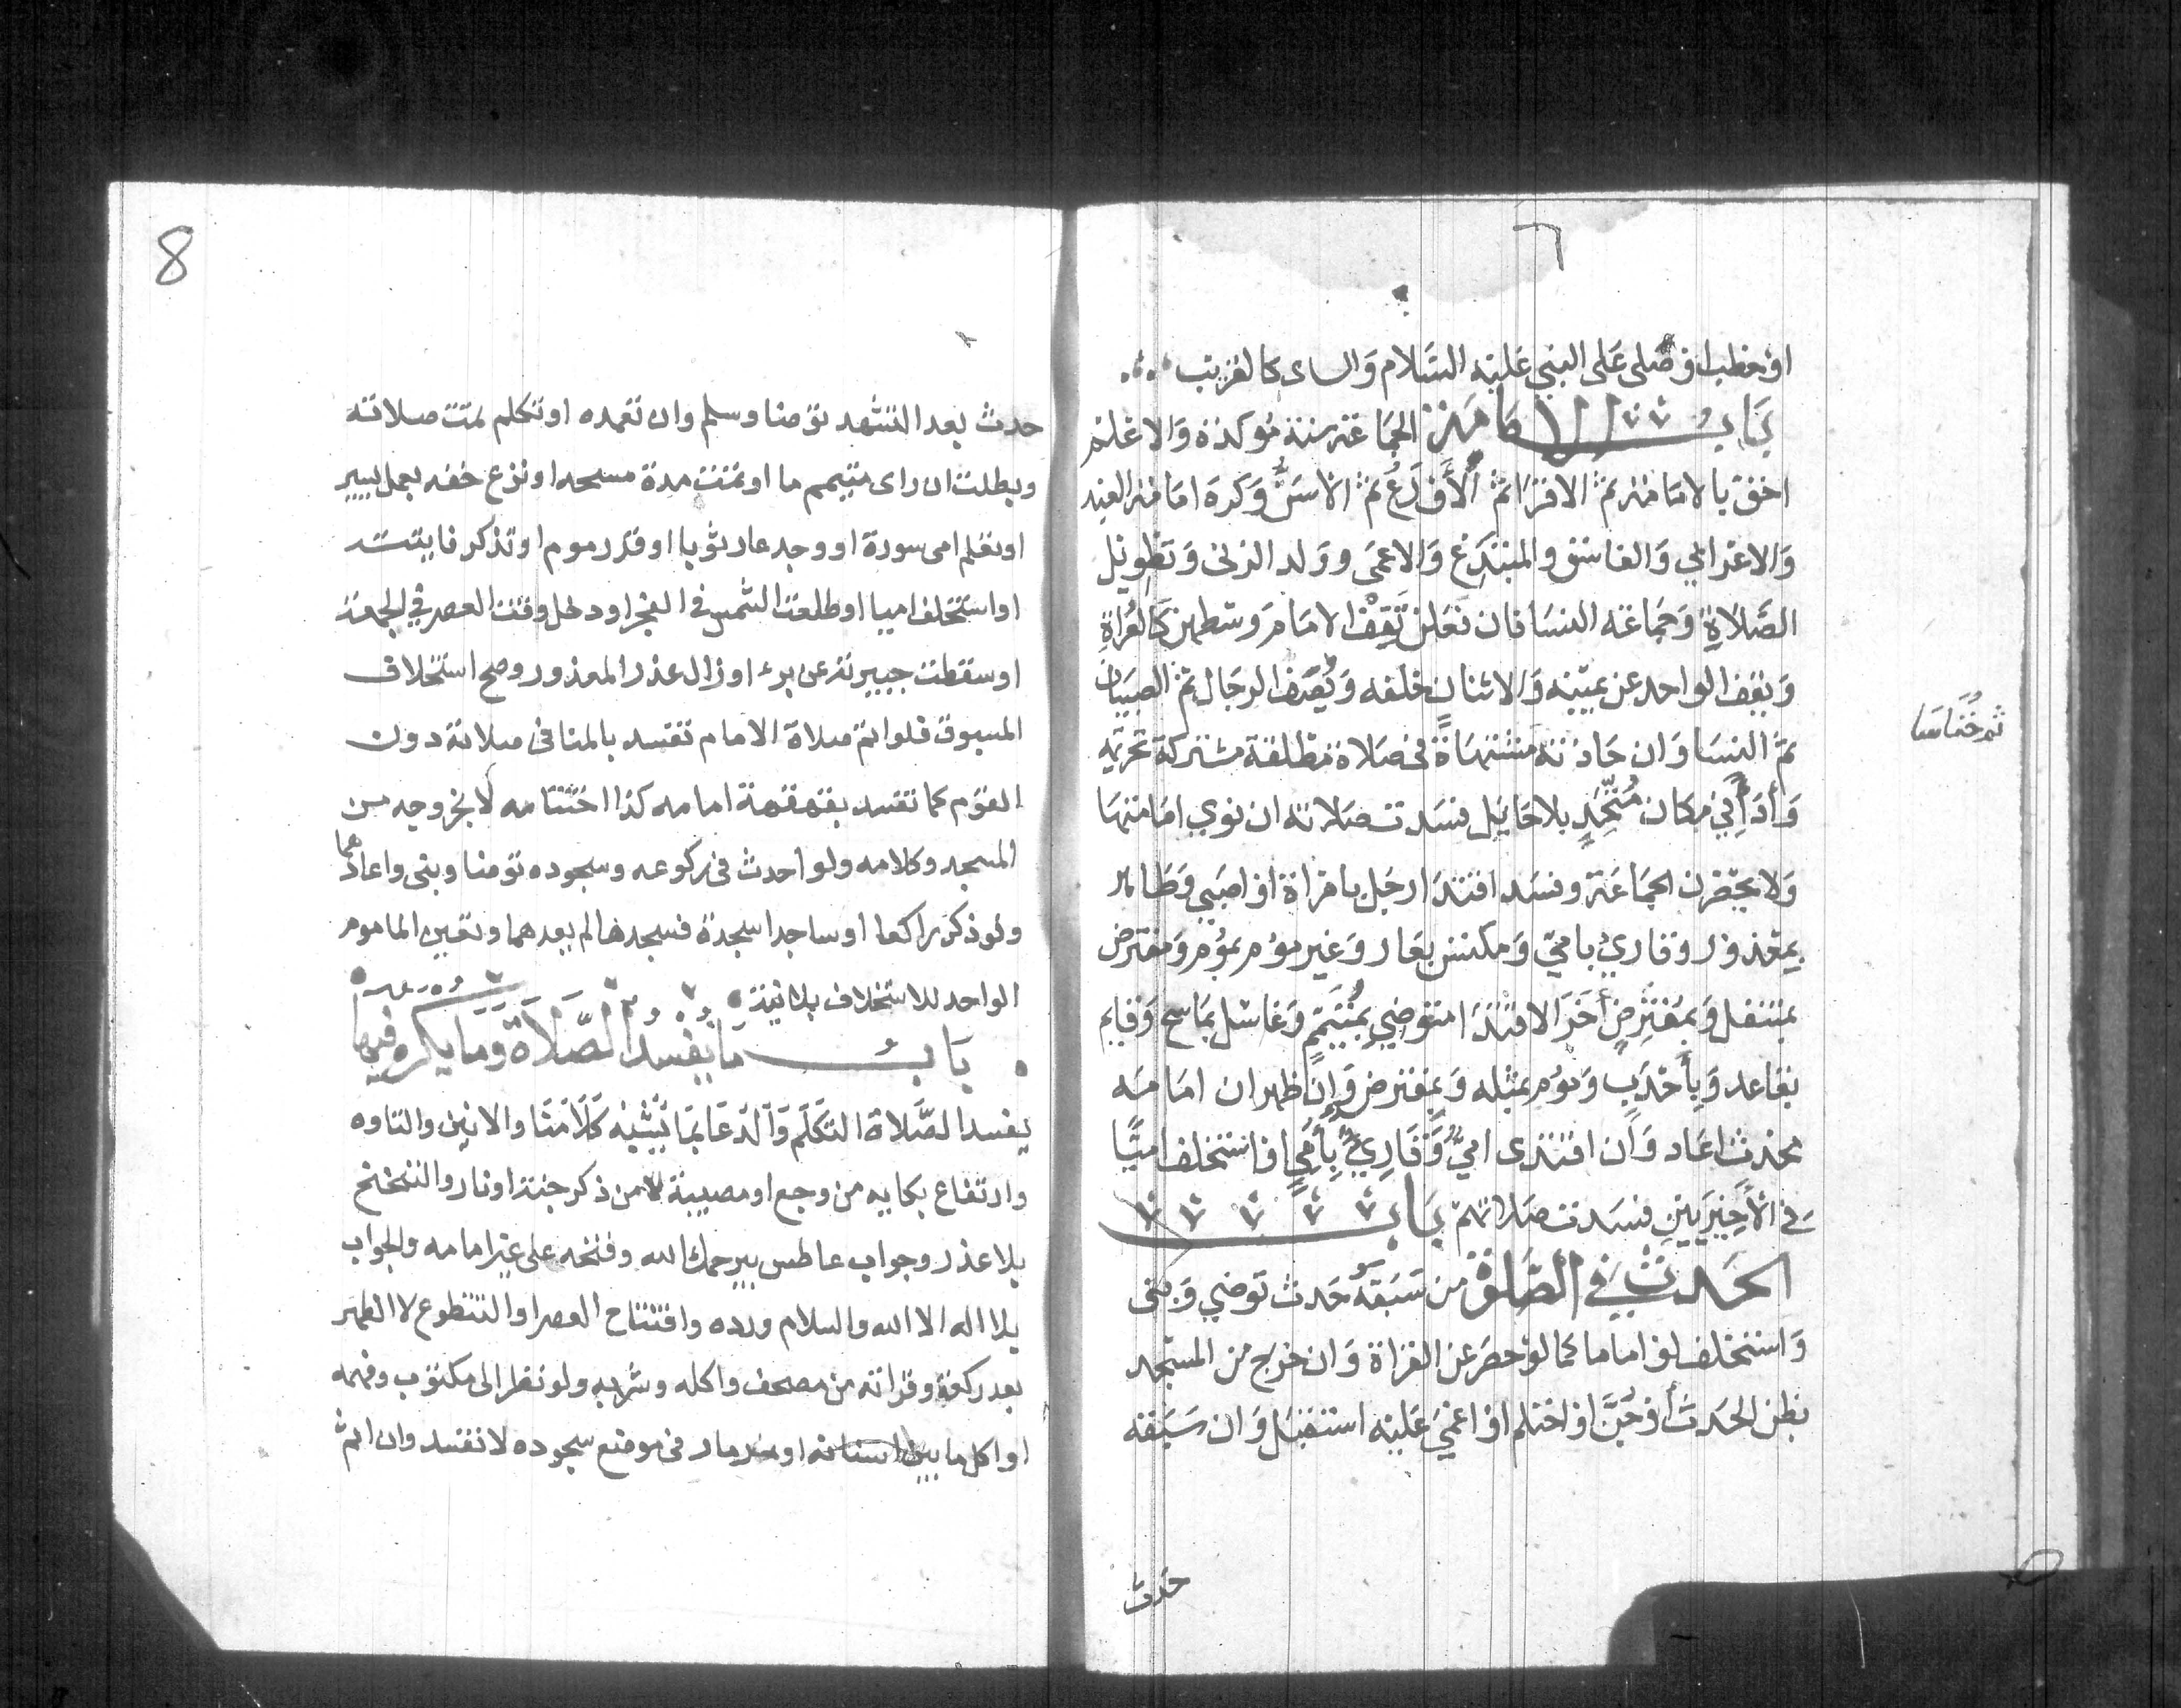 او خطب او صلى على النبي عليه السلام والناى كالقريب
باب الامامة الجماعة سنة مؤكدة والاعلم
احق بالامامة ثم الاقرا ثم الأورع ثم الاسن وكره امامة العبد
والاعرابي والفاسق والمبتدع والاعمى وولد الزنى وتطويل
الصلاة وجماعة النسا فان فعلن تقف الامام وسطهن كالعراة
ويقف الواحد عن يمينه والاثنان خلفه ويصف الرجال ثم الصبيان
ثم خناسا
ثم النسا وان حاذته مشتهاة في صلاة مطلقة مشتركة تحريمه
وأداً في مكان متحد بلا حايل فسدت صلاته ان نوي امامتها
ولا يحضرن الجماعة وفسد اقتدا رجل بامراة او صبي وطاهر
بمعذور وقاريُ بامي ومكتس بعار وغير موم بموم ومفترض
بمتنفل وبمفترض أخر لا اقتدا متوضي بمتيمم وغاسل بماسح وقايم
بقاعد وبأحدب وموم بمثله وبمفترض وإن ظهر ان امامه
محدث اعاد وان اقتدى امي وقاري بأمي او استخلف اميا
في الأخيريين فسدت صلاتهم باب
الحدث في الصلاة من سبقه حدث توضي وبنى
واستخلف لو اماما كما لو حصر عن القراة وان خرج من المسجد
بظن الحدث أو جن او احتلم او اغمي عليه استقبل وان سبقه
حدث
8
حدث بعد التشهد توضا وسلم وان تعمده او تكلم تمت صلاته
وبطلت ان راى متيمم ما او تمت مدة مسحه او نزع خفه بعمل يسير
او تعلم امى سورة او وجد عار ثوبا او قدر موم او تذكر فايتـة
او استخلف اميا او طلعت الشمس في الفجر او دخل وقت العصر في الجمعة
او سقطت جبيرته عن برء او زال عذر المعذور وصح استخلاف
المسبوق فلو اتم صلاة الامام تفسد بالمنافى صلاته دون
القوم كما تفسد بقهقهة امامه كذا اختتامه لا بخروجه من
المسجد وكلامه ولو أحدث في ركوعه وسجوده توضا وبنى واعادهما
ولو ذكر راكعا او ساجدا سجدة فسجدها لم يعدهما وتعين الماموم
الواحد للاستخلاف بلا نية
باب ما يفسد الصلاة وما يكره فيها
يفسد الصلاة التكلم والدعا بما يشبه كلامنا والانين والتاوه
وارتفاع بكايه من وجع او مصيبة لا من ذكر جنة او نار والتنحنح
بلا عذر وجواب عاطس بيرحمك الله وفتحه على غير امامه والجواب
بلا اله الا الله والسلام ورده وافتتاح العصر او التتطوع لا الظهر
بعد ركعة وقراته من مصحف واكله وشربه ولو نظر الى مكتوب وفهمه
او اكل ما بين اسنانه او مر مار في موضع سجوده لا تفسد وان اثم